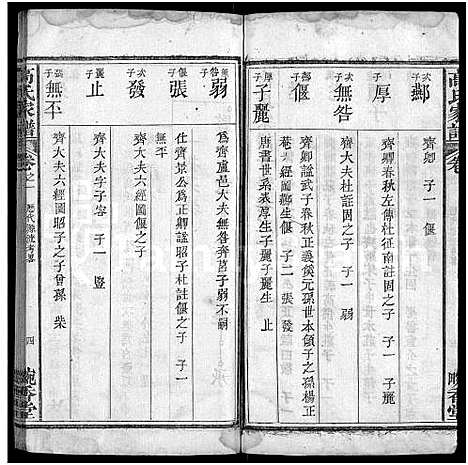 高氏家譜
卷
晚香堂
次子 鄅
齊卿 子一 偃
子 厚
齊卿春秋左傳杜征南註固之子 子一 子麗
次子 無咎
齊大夫杜註固之子 子一 弱
子 偃
齊卿諡武子春秋正義傒元孫世本頃子之孫楊正
菴六經圖厲生偃 子二 張 發
子 子麗
唐書世系表厚生子麗子麗生 止
無咎子 弱
爲齊盧邑大夫無咎奔莒子弱不嗣
偃子 張
仕齊景公爲正卿諡昭子杜註偃之子 子一
無丕
次子 發
齊大夫六經圖偃之子
子麗子 止
齊大夫字子容 子一 豎
張子 無丕
齊大夫六經圖昭子之子曾孫 柴
高氏家譜
卷之一
歷代源流考畧
四
晚香堂